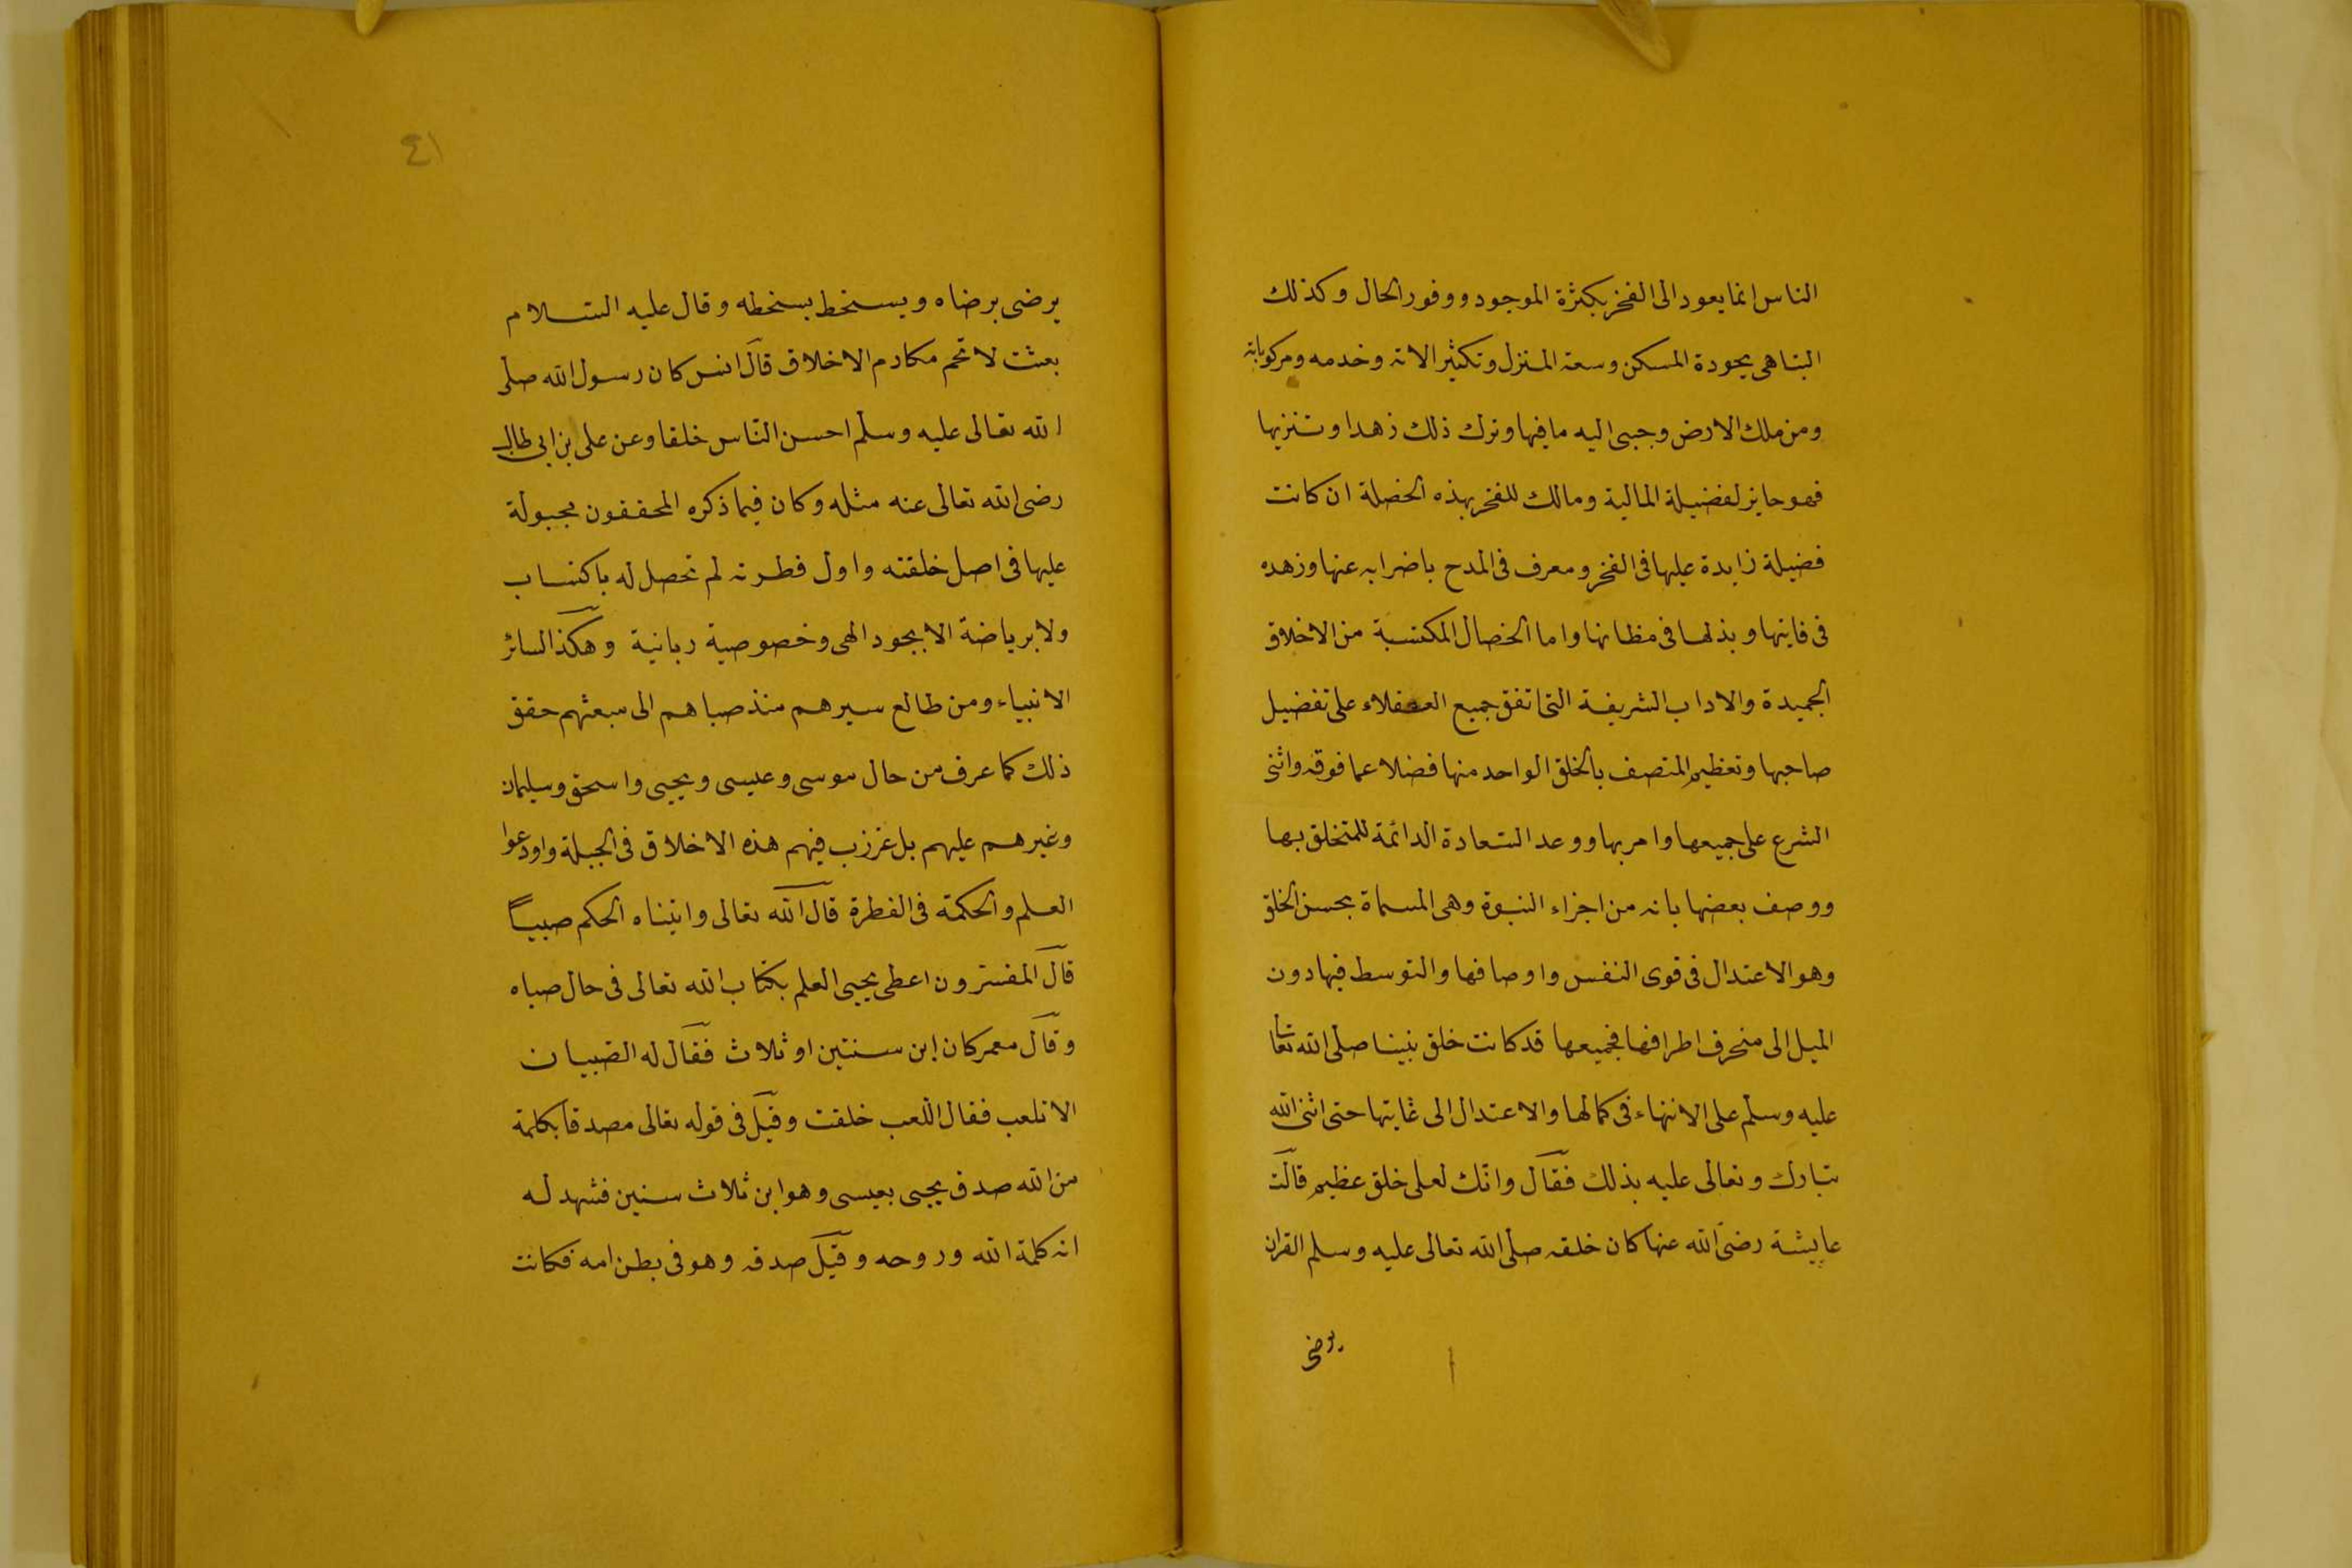 الناس انما يعود الى الفخر بكثرة الموجود ووفور الحال وكذلك
التباهى بجودة المسكن وسعة المنزل وتكثير الاته وخدمه ومركوباته
ومن ملك الارض وجبى اليه ما فيها وترك ذلك زهدا وتنزيها
فهو حايز لفضيلة المالية ومالك للفخر بهذه الخصلة ان كانت
فضيلة زايدة عليها فى الفخر ومعرف فى المدح باضرابه عنها وزهده
فى فايتها وبذلها فى مظانها واما الخصال المكتسبة من الاخلاق
الحميدة والاداب الشريفة التى اتفق جميع العقلاء على تفضيل
صاحبها وتعظيم المتصف بالخلق الواحد منها فضلا عما فوقه واثنى
الشرع على جميعها وامر بها ووعد السعادة الدائمة للمتخلق بها
ووصف بعضها بانه من اجزاء النبوة وهى المسماة بحسن الخلق
وهو الاعتدال فى قوى النفس واوصافها والتوسط فيها دون
الميل الى منحرف اطرافها فجميعها قد كانت خلق نبينا صلى الله تعالى
عليه وسلم على الانتهاء فى كمالها والاعتدال الى غايتها حتى اثنى الله
تبارك وتعالى عليه بذلك فقال وانك لعلى خلق عظيم قالت
عايشة رضى الله عنها كان خلقه صلى الله تعالى عليه وسلم القران
يرضى
٤١
يرضى برضاه ويسخط بسخطه وقال عليه السلام
بعثت لاتمم مكارم الاخلاق قال انس كان رسول الله صلى
الله تعالى عليه وسلم احسن الناس خلقا وعن على بن ابى طالب
رضى الله تعالى عنه مثله وكان فيما ذكره المحققون مجبولة
عليها فى اصل خلقته واول فطرته لم تحصل له باكتساب
ولا برياضة الا بجود الهى وخصوصية ربانية وهكذا لسائر
الانبياء ومن طالع سيرهم منذ صباهم الى مبعثهم حقق
ذلك كما عرف من حال موسى وعيسى ويحيى واسحق وسليمان
وغيرهم عليهم بل غرزت فيهم هذه الاخلاق فى الجبلة واودعوا
العلم والحكمة فى الفطرة قال الله تعالى واتيناه الحكم صبيا
قال المفسرون اعطى يحيى العلم بكتاب الله تعالى فى حال صباه
وقال معمر كان ابن سنتين او ثلاث فقال له الصبيان
الا تلعب فقال اللعب خلقت وقيل فى قوله تعالى مصدقا بكلمة
من الله صدق يحيى بعيسى وهو ابن ثلاث سنين فشهد له
انه كلمة الله وروحه وقيل صدقه وهو فى بطن امه فكانت